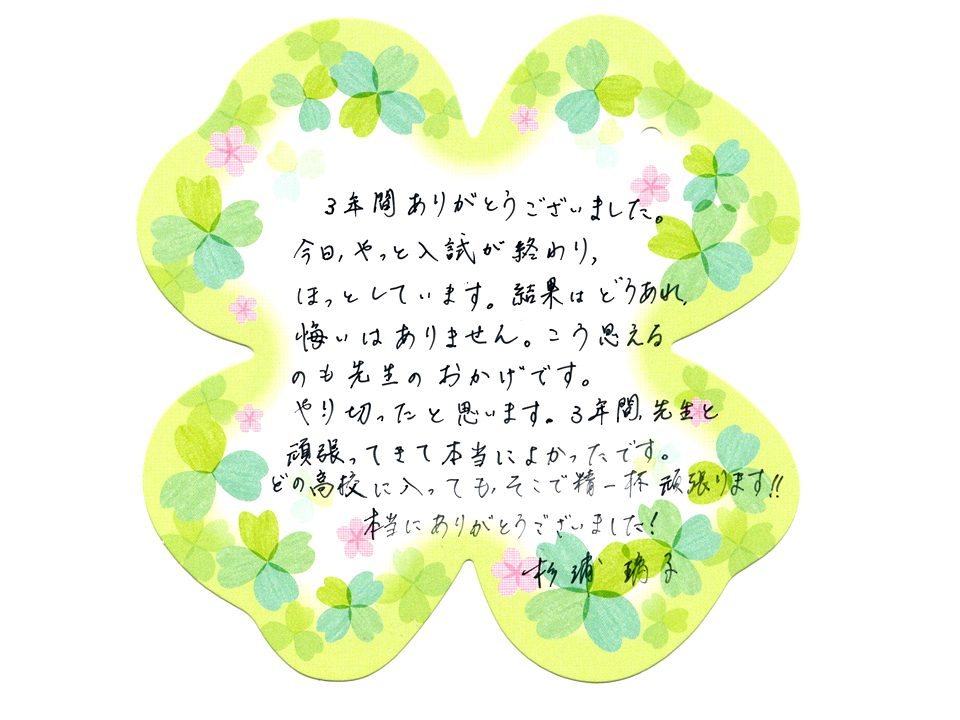 3年間ありがとうございました。
今日、やっと入試が終わり、
ほっとしています。結果はどうあれ、
悔いはありません。こう思える
のも先生のおかげです。
やり切ったと思います。3年間、先生と
頑張ってきて本当によかったです。
どの高校に入っても、そこで精一杯頑張ります!!
本当にありがとうございました!
杉浦 璃子